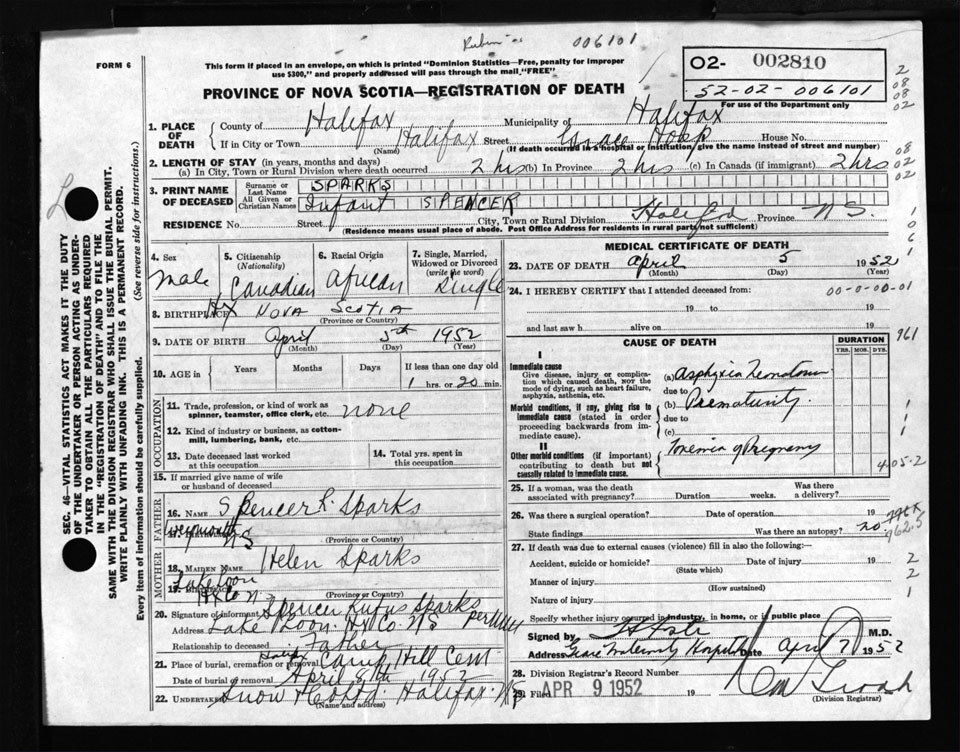 006101
FORM 6
This form if placed in an envelope, on which is printed "Dominion Statistics—Free, penalty for improper
use $300," and properly addressed will pass through the mail "FREE"
PROVINCE OF NOVA SCOTIA—REGISTRATION OF DEATH
02- 002810
52-02-006101
For use of the Department only
1. PLACE OF DEATH
County of Halifax Municipality of Halifax
If in City or Town Halifax Street Grace Hosp House No.
(Name) (If death occurred in a hospital or institution, give the name instead of street and number)
2. LENGTH OF STAY (in years, months and days)
(a) In City, Town or Rural Division where death occurred 2 hrs (b) In Province 2 hrs (c) In Canada (if immigrant) 2 hrs
3. PRINT NAME OF DECEASED
Surname or Last Name SPARKS
All Given or Christian Names Infant SPENCER
RESIDENCE No. Street City, Town or Rural Division Halifax Province N S.
(Residence means usual place of abode. Post Office Address for residents in rural parts not sufficient)
4. Sex Male
5. Citizenship (Nationality) Canadian
6. Racial Origin African
7. Single, Married, Widowed or Divorced (write the word) Single
8. BIRTHPLACE Hx NOVA SCOTIA
(Province or Country)
9. DATE OF BIRTH April 5th 1952
(Month) (Day) (Year)
10. AGE in Years Months Days If less than one day old
1 hrs. or 20 min.
OCCUPATION
11. Trade, profession, or kind of work as spinner, teamster, office clerk, etc. none
12. Kind of industry or business, as cotton-mill, lumbering, bank, etc.
13. Date deceased last worked at this occupation
14. Total yrs. spent in this occupation
15. If married give name of wife or husband of deceased
FATHER
16. NAME Spencer R. Sparks
17. Weymouth NS
(Province or Country)
MOTHER
18. MAIDEN NAME Helen Sparks
19. Lake Loon Hx Co N.S
(Province or Country)
20. Signature of informant Spencer Rufus Sparks
Address Lake Loon Hx Co. NS
Relationship to deceased Father
21. Place of burial, cremation or removal Camp Hill Cem
Date of burial or removal April 8th 1952
22. Undertaker Snow & Co Ltd. Halifax NS
(Name and address)
MEDICAL CERTIFICATE OF DEATH
23. DATE OF DEATH April 5 1952
(Month) (Day) (Year)
24. I HEREBY CERTIFY that I attended deceased from: 00-0-00-01
19 to 19
and last saw h alive on 19
CAUSE OF DEATH
DURATION
YRS. MOS. DYS.
961
I
Immediate cause
Give disease, injury or complication which caused death, NOT the mode of dying, such as heart failure, asphyxia, asthenia, etc.
(a) Asphyxia Neonatorum
due to
Morbid conditions, if any, giving rise to immediate cause (stated in order proceeding backwards from immediate cause).
(b) Prematurity.
due to
(c)
II
Other morbid conditions (if important) contributing to death but not causally related to immediate cause.
Toxemia of Pregnancy
405-2
25. If a woman, was the death associated with pregnancy? Duration weeks. Was there a delivery?
26. Was there a surgical operation? Date of operation 19
State findings Was there an autopsy? no
962.5
27. If death was due to external causes (violence) fill in also the following:—
Accident, suicide or homicide? Date of injury 19
(State which)
Manner of injury
(How sustained)
Nature of injury
Specify whether injury occurred in industry, in home, or in public place
Signed by M.D.
Address Grace Maternity Hospital Date April 7 1952
28. Division Registrar's Record Number
29. Filed APR 9 1952 19
(Division Registrar)
SEC. 46—VITAL STATISTICS ACT MAKES IT THE DUTY
OF THE UNDERTAKER OR PERSON ACTING AS UNDER-
TAKER TO OBTAIN ALL THE PARTICULARS REQUIRED
IN THE "REGISTRATION OF DEATH" AND TO FILE THE
SAME WITH THE DIVISION REGISTRAR WHO SHALL ISSUE THE BURIAL PERMIT.
WRITE PLAINLY WITH UNFADING INK. THIS IS A PERMANENT RECORD.
Every item of information should be carefully supplied. (See reverse side for instructions.)